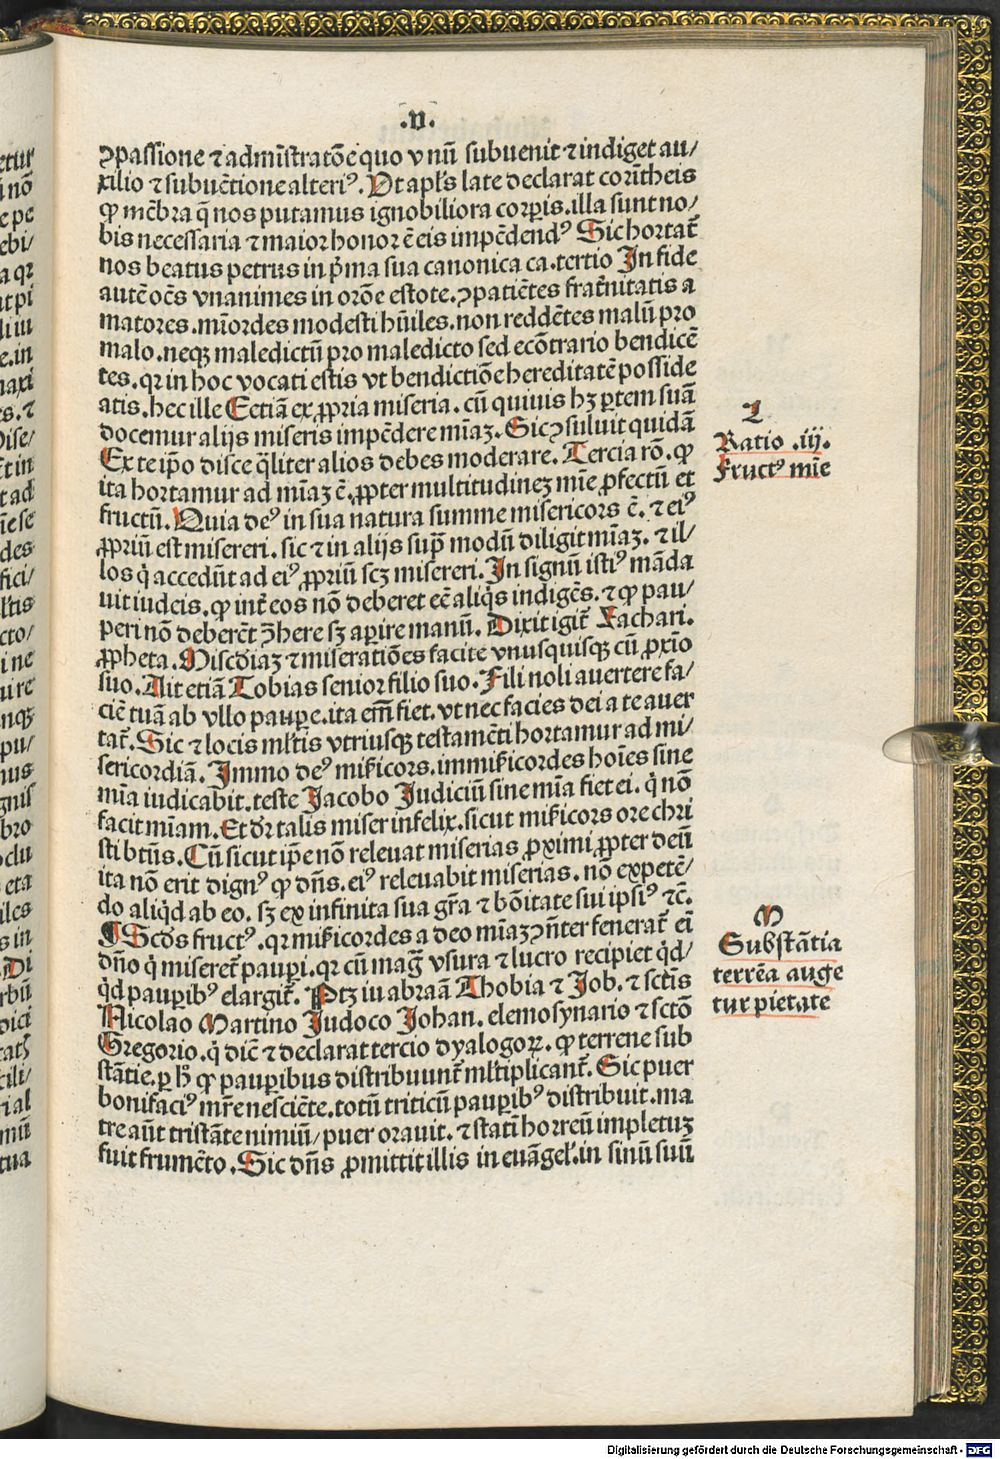 .VI.
ꝯpassione ⁊ admīstratōe quo vnū subuenit ⁊ indiget au/
xilio ⁊ subuētione alteriꝰ. Vt apl's late declarat corītheis
ꝙ mēbra q̄ nos putamus ignobiliora corꝑis. illa sunt no/
bis necessaria ⁊ maior honor ē eis impēdendꝰ Sic hortat᷑
nos beatus petrus in p̄ma sua canonica ca. tertio In fide
autē oēs vnanimes in orōe estote. ꝯpatiētes frat᷑nitatis a
matores. mīordes modesti hūiles. non reddētes malū pro
malo. neqꝫ maledictū pro maledicto sed ecōtrario bendicē
tes. qꝛ in hoc vocati estis vt bendictiōe hereditatē posside
atis. hec ille Ectiā ex ꝓpria miseria. cū quiuis hꝫ ꝑtem suā
docemur alijs miseris impēdere mīaꝫ. Sic ꝯsuluit quidā
Ex te ip̄o disce q̄liter alios debes moderare. Tercia rō. ꝙ
ita hortamur ad mīaꝫ ē. ꝓpter multitudineꝫ mīe ꝓfectū et
fructū. Quia deꝰ in sua natura summe misericors ē. ⁊ eiꝰ
ꝓpriū est misereri. sic ⁊ in alijs sup̄ modū diligit mīaꝫ. ⁊ il/
los q̇ accedūt ad eiꝰ ꝓpriū scꝫ misereri. In signū istiꝰ māda
uit iudeis. ꝙ int᷑ eos nō deberet eē aliq̇s indigēs. ⁊ ꝙ pau/
peri nō deberēt ꝯ̄here sꝫ aꝑire manū. Dixit igit᷑ Zachari.
ꝓpheta. Miscdīaꝫ ⁊ miseratiōes facite vnusquisqꝫ cū ꝓxīo
suo. Ait etiā Tobias senior filio suo. Fili noli auertere fa/
ciē tuā ab vllo pauꝑe. ita em̄ fiet. vt nec facies dei a te auer
tat᷑. Sic ⁊ locis ml'tis vtriusqꝫ testamēti hortamur ad mi/
sericordiā. Immo deꝰ mik̄icors. immik̄icordes hoīes sine
mīa iudicabit. teste Jacobo Judiciū sine mīa fiet ei. q̇ nō
facit mīam. Et dr̄ talis miser infelix. sicut mik̄icors ore chri
sti btūs. Cū sicut ip̄e nō releuat miserias ꝓximi ꝓpter deū
ita nō erit dignꝰ ꝙ dn̄s. eiꝰ releuabit miserias. nō expetē/
do aliq̇d ab eo. sꝫ ex infinita sua gr̄a ⁊ bōitate sui ipsiꝰ ⁊c̄.
¶ Scd̄s fructꝰ. qꝛ mik̄icordes a deo mīaꝫ ꝯn̄ter fenerat᷑ eī
dn̄o q̇ miseret᷑ pauꝑi. qꝛ cū mag᷑ vsura ⁊ lucro recipiet q̇d/
q̇d pauꝑibꝰ elargit᷑. Ptꝫ iu abraā Thobia ⁊ Job. ⁊ sctīs
Nicolao Martino Judoco Johan. elemosynario ⁊ sctō
Gregorio. q̇ dic̄ ⁊ declarat tercio dyalogoꝝ. ꝙ terrene sub
stātie. ꝑ h̄ ꝙ pauꝑibus distribuunt᷑ ml'tiplicant᷑. Sic puer
bonifaciꝰ mr̄e nesciēte. totū triticū pauꝑibꝰ distribuit. ma
tre aūt tristāte nimiū/ puer orauit. ⁊ statī horreū impletuꝫ
fuit frumēto. Sic dn̄s ꝓmittit illis in euāgel'. in sinū suū
L
Ratio .iij.
Fructꝰ mīe
M
Substātia
terrēa auge
tur pietate
Digitalisierung gefördert durch die Deutsche Forschungsgemeinschaft - DFG